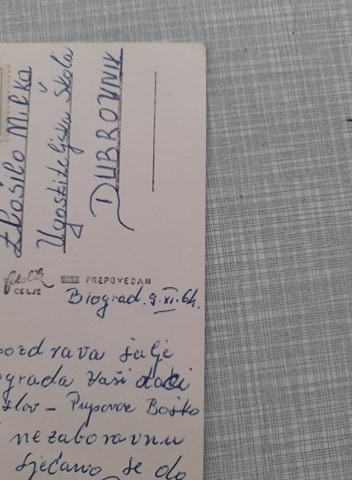 Milka
Ugostiteljska Škola
DUBROVNIK
CELJE
PREPOVEDAN
Biograd. 9. XI. 64.
pozdrava šalje
ograda Vaši đaci
slov - Pupovac Boško
i nezaboravnu
sjećamo se do